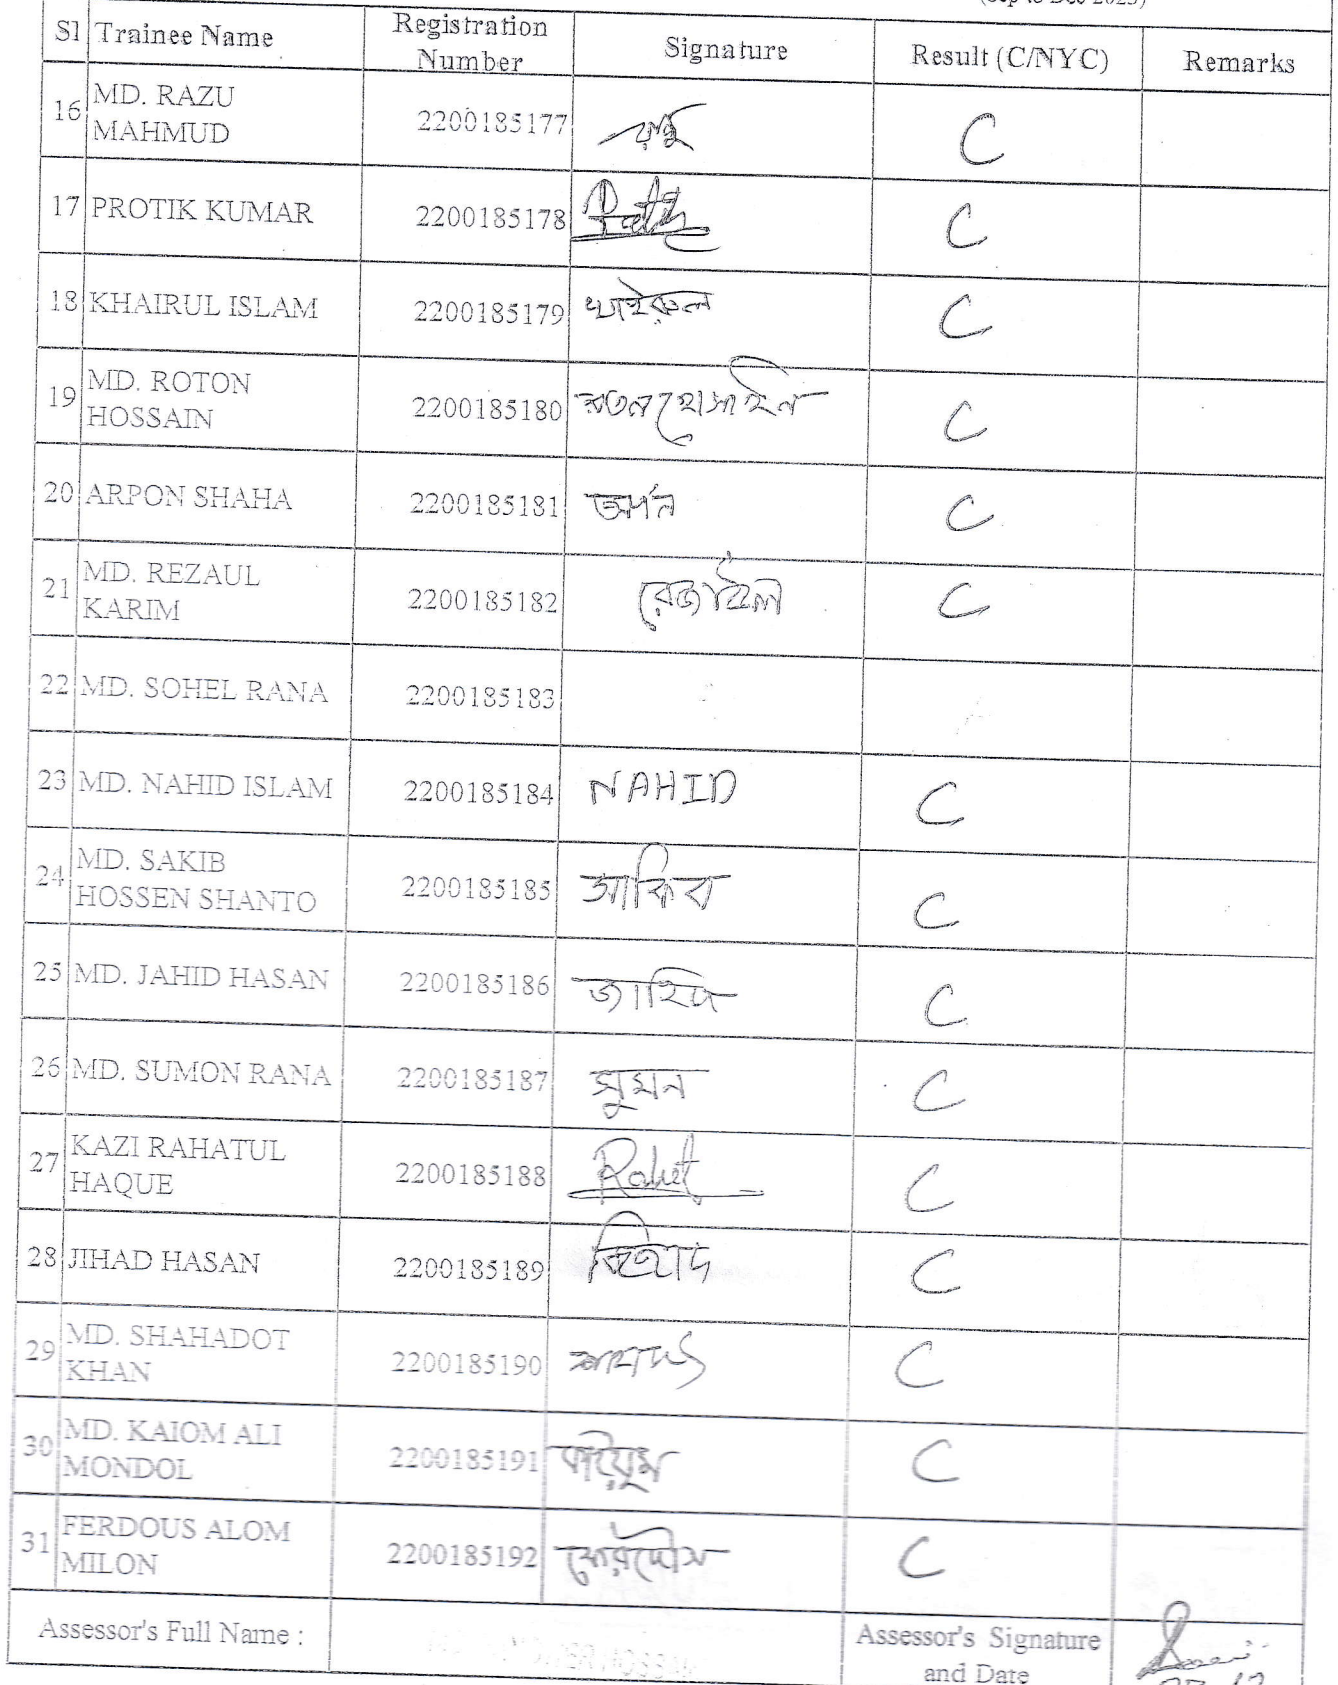 Sl Trainee Name Registration Number Signature Result (C/NYC) Remarks
16 MD. RAZU MAHMUD 2200185177 রাজু C
17 PROTIK KUMAR 2200185178 C
18 KHAIRUL ISLAM 2200185179 খাইরুল C
19 MD. ROTON HOSSAIN 2200185180 রতন হোসাইন C
20 ARPON SHAHA 2200185181 অর্পন C
21 MD. REZAUL KARIM 2200185182 রেজাউল C
22 MD. SOHEL RANA 2200185183
23 MD. NAHID ISLAM 2200185184 NAHID C
24 MD. SAKIB HOSSEN SHANTO 2200185185 সাকিব C
25 MD. JAHID HASAN 2200185186 জাহিদ C
26 MD. SUMON RANA 2200185187 সুমন C
27 KAZI RAHATUL HAQUE 2200185188 Rahat C
28 JIHAD HASAN 2200185189 জিহাদ C
29 MD. SHAHADOT KHAN 2200185190 C
30 MD. KAIOM ALI MONDOL 2200185191 কাইয়ুম C
31 FERDOUS ALOM MILON 2200185192 ফেরদৌস C
Assessor's Full Name : Assessor's Signature and Date